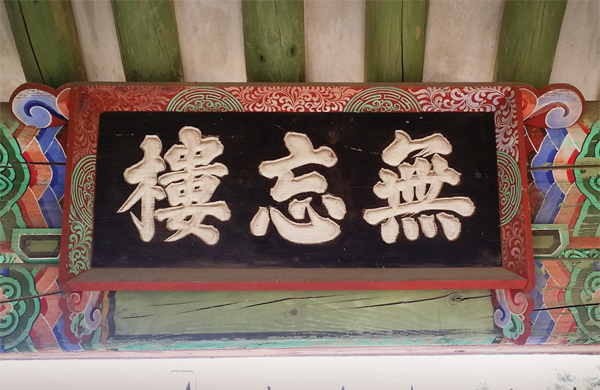 無忘樓